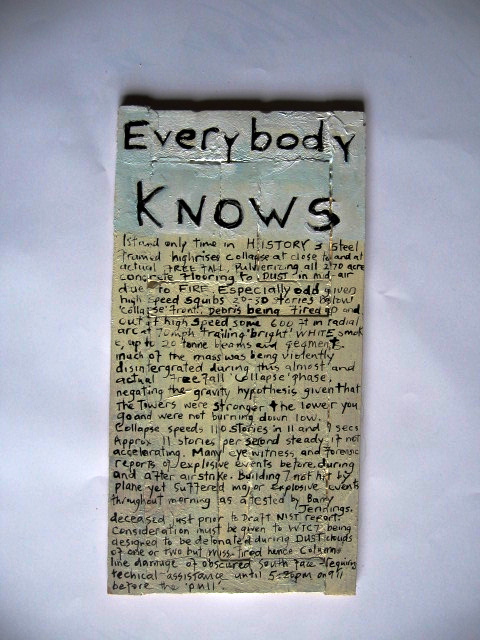 Everybody
KNOWS
1st and only time in HISTORY 3 steel
framed highrises collapse at close to and at
actual FREE FALL, Pulverizing all 270 acre
concrete flooring to DUST in mid-air
due to FIRE ESPECIALLY odd given
high speed squibs 20-30 stories below
'collapse front', Debris being fired up and
out at high speed some 600 ft in radial
arc at 70 mph trailing 'bright' WHITE smok
e, up to 20 tonne beams and segments.
much of the mass was being violently
disintergrated during this almost and
actual free fall 'collapse' phase,
negating the gravity hypothesis given that
the Towers were stronger the lower you
go and were not burning down low.
Collapse speeds 110 stories in 11 and secs
Approx 11 stories per second steady if not
accelerating. Many eye witness and forensic
reports of explosive events before, during
and after airstrike. building 7 not hit by
plane yet suffered major explosive events
throughout morning as atested by Barry
Jennings.
deceased just prior to Draft NIST report.
consideration must be given to WTC7 being
designed to be detonated during DUST clouds
of one or two but miss-fired hence Column
line damage of obscured South face requiring
techical assistance until 5:20pm on 9 11
before the 'pull'.